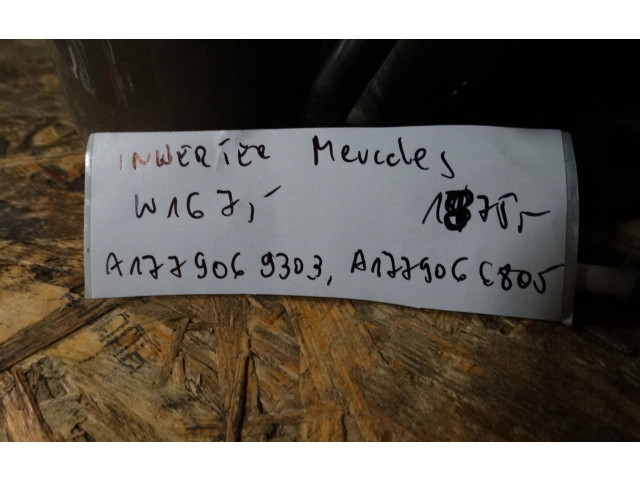 INWERTER Mercedes
W167,- 1875,-
A1779069303, A1779066805